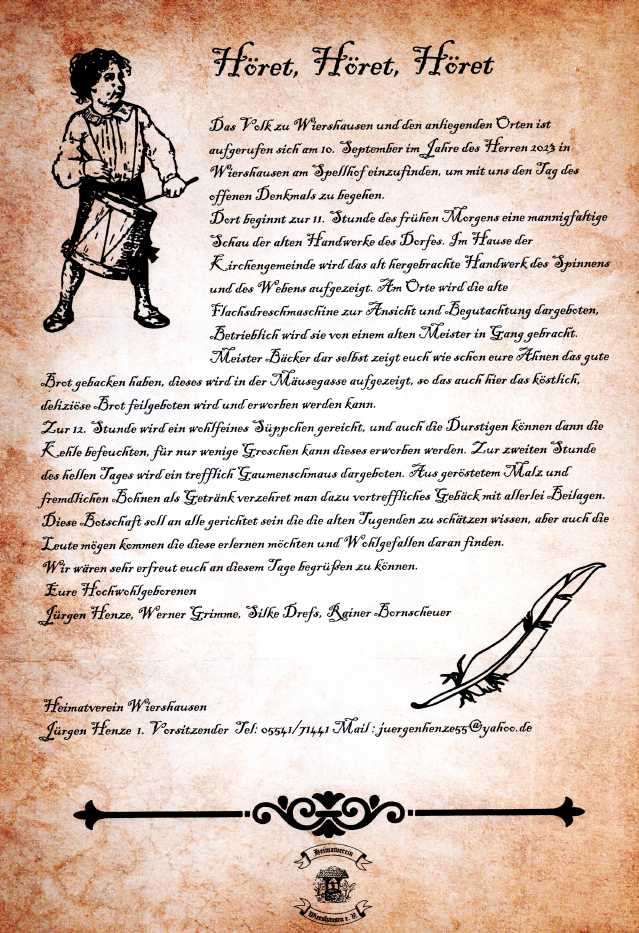 Höret, Höret, Höret
Das Volk zu Wiershausen und den anliegenden Orten ist
aufgerufen sich am 10. September im Jahre des Herren 2023 in
Wiershausen am Spellhof einzufinden, um mit uns den Tag des
offenen Denkmals zu begehen.
Dort beginnt zur 11. Stunde des frühen Morgens eine mannigfaltige
Schau der alten Handwerke des Dorfes. Im Hause der
Kirchengemeinde wird das alt hergebrachte Handwerk des Spinnens
und des Webens aufgezeigt. Am Orte wird die alte
Flachsdreschmaschine zur Ansicht und Begutachtung dargeboten,
Betrieblich wird sie von einem alten Meister in Gang gebracht.
Meister Bäcker dar selbst zeigt euch wie schon eure Ahnen das gute
Brot gebacken haben, dieses wird in der Mäusegasse aufgezeigt, so das auch hier das köstlich,
deliziöse Brot feilgeboten wird und erworben werden kann.
Zur 12. Stunde wird ein wohlfeines Süppchen gereicht, und auch die Durstigen können dann die
Kehle befeuchten, für nur wenige Groschen kann dieses erworben werden. Zur zweiten Stunde
des hellen Tages wird ein trefflich Gaumenschmaus dargeboten. Aus geröstetem Malz und
fremdlichen Bohnen als Getränk verzehret man dazu vortreffliches Gebäck mit allerlei Beilagen.
Diese Botschaft soll an alle gerichtet sein die die alten Tugenden zu schätzen wissen, aber auch die
Leute mögen kommen die diese erlernen möchten und Wohlgefallen daran finden.
Wir wären sehr erfreut euch an diesem Tage begrüßen zu können.
Eure Hochwohlgeborenen
Jürgen Henze, Werner Grimme, Silke Drefs, Rainer Bornscheuer
Heimatverein Wiershausen
Jürgen Henze 1. Vorsitzender Tel: 05541/71441 Mail : juergenhenze55@yahoo.de
Heimatverein
Wiershausen e. V.